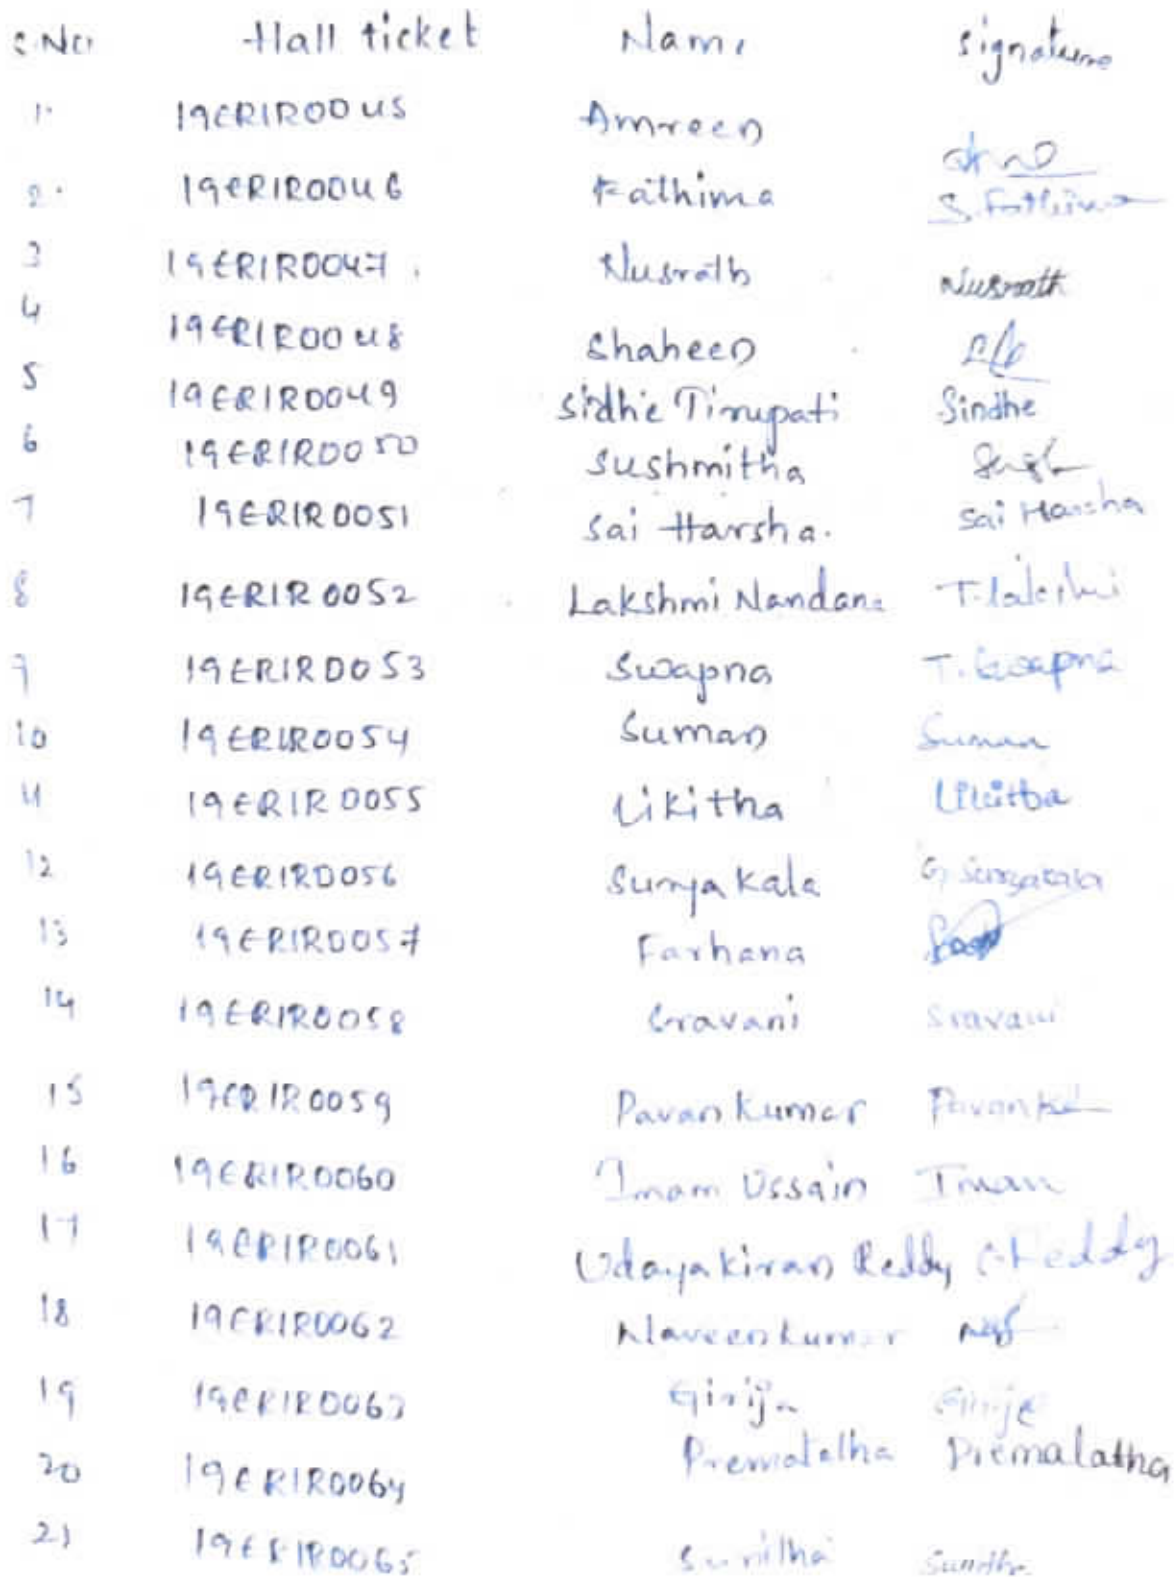 S.No Hall ticket Name Signature
1. 19ERIR0045 Amreen
2. 19ERIR0046 Fathima S. Fathima
3 19ERIR0047. Nusrath Nusrath
4 19ERIR0048 Shaheen
5 19ERIR0049 Sidhe Tirupati Sindhe
6 19ERIR0050 Sushmitha
7 19ERIR0051 Sai Harsha. Sai Harsha
8 19ERIR0052 Lakshmi Nandana T. Lakshmi
9 19ERIR0053 Swapna T. Swapna
10 19ERIR0054 Suman Suman
11 19ERIR0055 Likitha Likitha
12 19ERIR0056 Surya Kala G. Suryakala
13 19ERIR0057 Farhana
14 19ERIR0058 Sravani Sravani
15 19ERIR0059 Pavan Kumar
16 19ERIR0060 Imam Ussain Imam
17 19ERIR0061 Udaya kiran Reddy Reddy
18 19ERIR0062 Naveen kumar
19 19ERIR0063 Girija Girija
20 19ERIR0064 Prematatha Premalatha
21 19ERIR0065 Sunitha